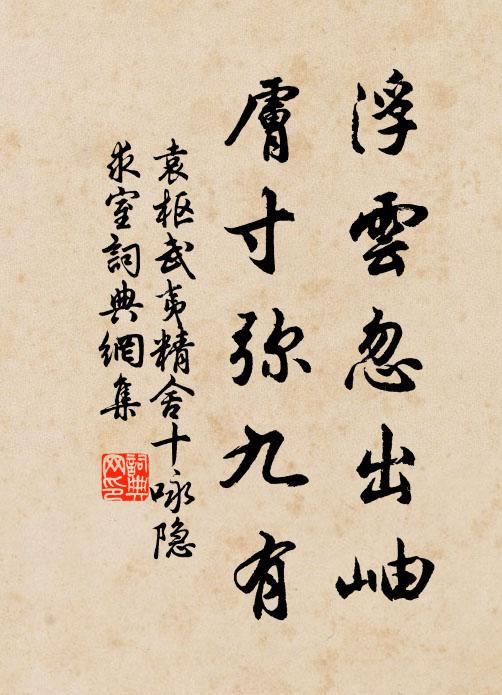 浮雲忽出岫
膚寸弥九有
袁枢武夷精舍十咏隐
求室詞典網集
詞典网印